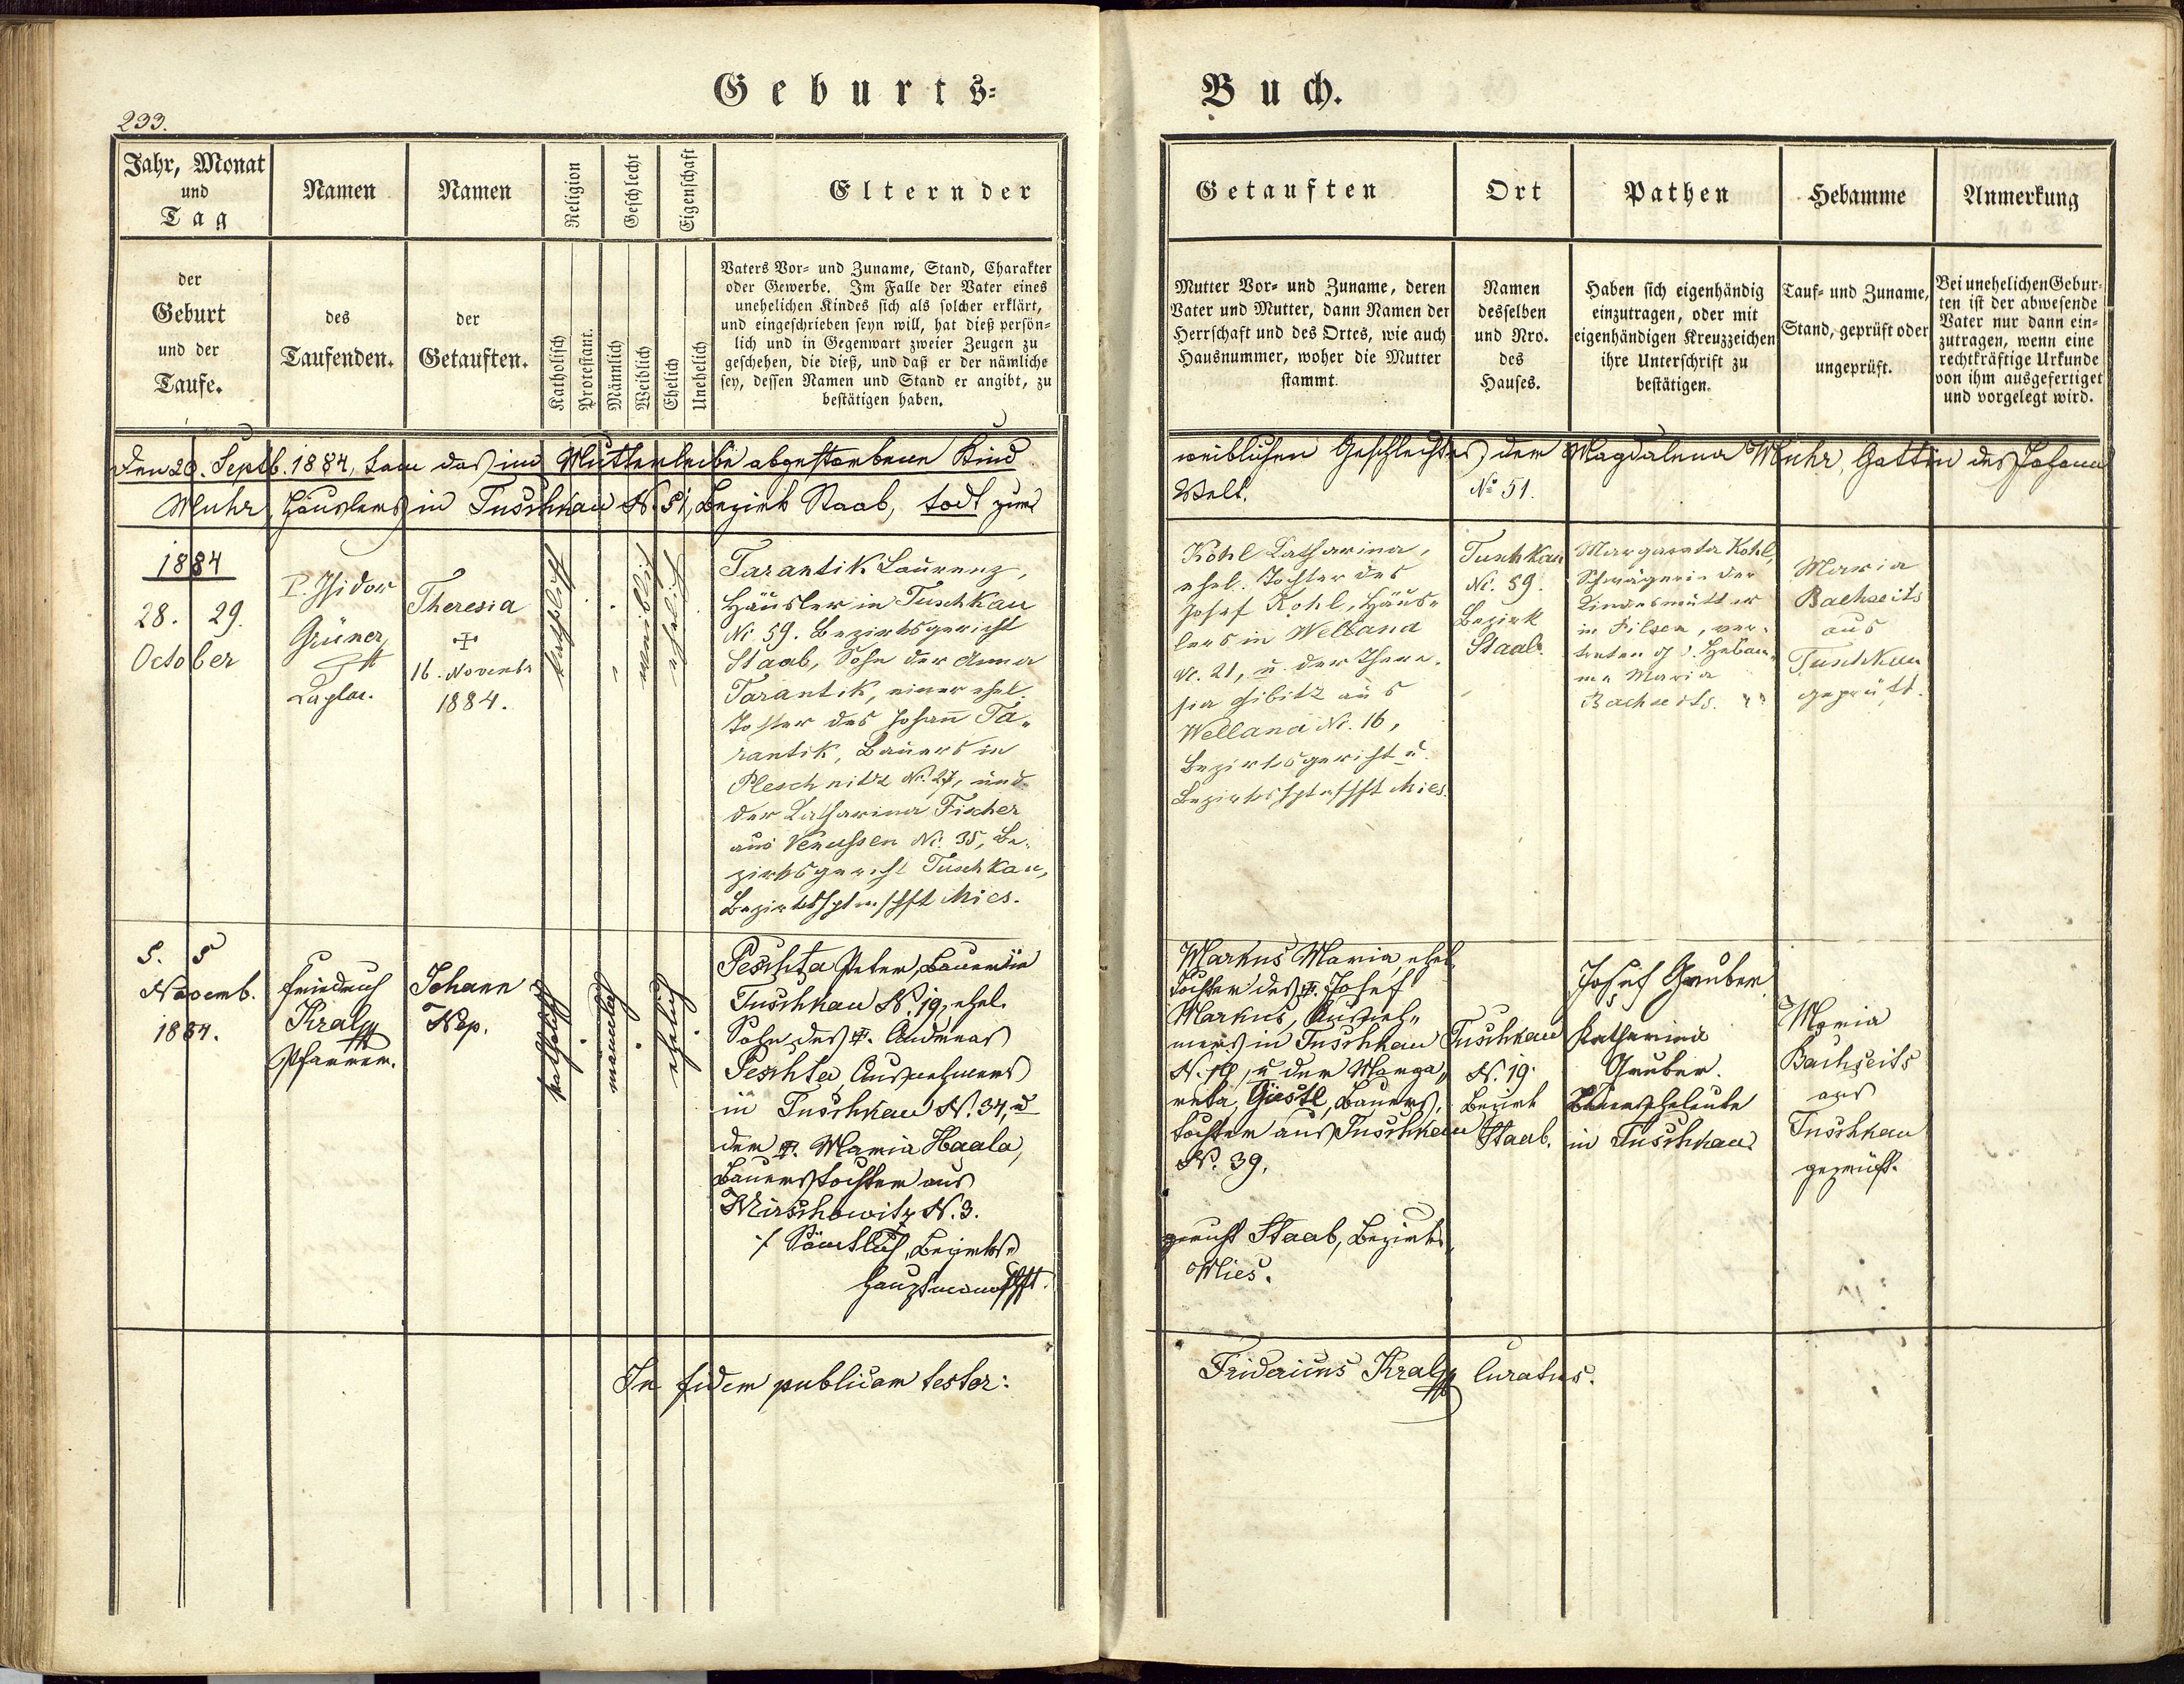 Geburts=
Buch.
233.
Jahr, Monat
und
Tag
Namen
Namen
Religion
Geschlecht
Eigenschaft
Eltern der
der
Geburt
und der
Taufe.
des
Taufenden.
der
Getauften.
Katholisch
Protestant.
Männlich
Weiblich
Ehelich
Unehelich
Vaters Vor= und Zuname, Stand, Charakter
oder Gewerbe. Im Falle der Vater eines
unehelichen Kindes sich als solcher erklärt,
und eingeschrieben seyn will, hat dieß persön=
lich und in Gegenwart zweier Zeugen zu
geschehen, die dieß, und daß er der nämliche
sey, dessen Namen und Stand er angibt, zu
bestätigen haben.
Getauften
Ort
Pathen
Hebamme
Anmerkung
Mutter Vor= und Zuname, deren
Vater und Mutter, dann Namen der
Herrschaft und des Ortes, wie auch
Hausnummer, woher die Mutter
stammt.
Namen
desselben
und Nro.
des
Hauses.
Haben sich eigenhändig
einzutragen, oder mit
eigenhändigen Kreuzzeichen
ihre Unterschrift zu
bestätigen.
Tauf= und Zuname,
Stand, geprüft oder
ungeprüft.
Bei unehelichen Gebur=
ten ist der abwesende
Vater nur dann ein=
zutragen, wenn eine
rechtkräftige Urkunde
von ihm ausgefertiget
und vorgelegt wird.
Den 20. Septb. 1884, kam das im Mutterleibe abgestorbene Kind
weiblichen Geschlechtes der Magdalena Muhr, Gattin des Johann
Muhr, Häuslers in Tuschkau N. 51, Bezirk Staab, todt zur
Welt.
No 51.
1884
28. 29.
October
P. Isidor
Grüner
Theresia
16. Novembr
1884.
katholisch
weiblich
ehelich
Tarantik Laurenz,
Häusler in Tuschkau
Nr. 59. Bezirksgericht
Staab, Sohn der Anna
Tarantik, einer ehel.
Tochter des Johann Ta„
rantik, Bauers in
Pleschnitz Nr. 27, und
der Katharina Fischer
aus Nr. 35, Be„
zirksgericht Tuschkau,
Bezirkshptmschft Mies.
Kohl Katharina,
ehel. Tochter des
Josef Kohl, Häus„
lers in Wellana
Nr. 21, u. der There„
sia Gibitz aus
Wellana Nr. 16,
Bezirksgericht u.
Bezirkshptmschft Mies.
Tuschkau
Nr. 59.
Bezirk
Staab.
Margareta Kohl,
Schwägerin der
Kindesmutter
in Pilsen, ver„
treten d. Hebam„
me Maria
Bachseits.
Maria
Bachseits
aus
Tuschkau
geprüft.
5. 5
Novemb.
1884.
Friedrich
Kral
Pfarrer.
Johann
Nep.
katholisch
männlich
ehelich
Peschta Peter, Bauer in
Tuschkau N. 19, ehel.
Sohn des Andreas
Peschta, Ausnehmers
in Tuschkau N. 34, u
der Maria Haala,
Bauerstochter aus
Wirschowitz N. 3.
./. Sämtlich, Bezirks„
hauptmannschft.
Markus Maria, ehel.
Tochter des Josef
Markus, Ausneh„
mers in Tuschkau
u der Marga„
reta Güstl, Bauers„
tochter aus Tuschkau
N. 39.
gericht Staab, Bezirks„
Mies.
Tuschkau
N. 19.
Bezirk
Staab.
Josef Gruber
Katharina
Gruber.
Bauerseheleute
in Tuschkau
Maria
Bachseits
aus
Tuschkau
geprüft.
In fidem publicam testor:
Fridericus Kral Curatus.